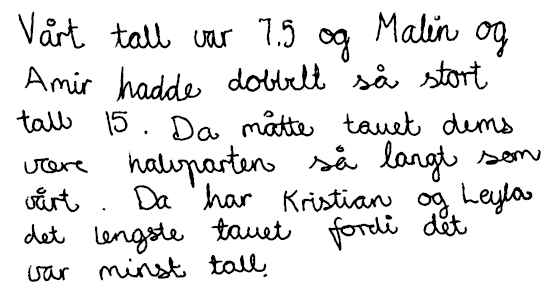 Vårt tall var 7.5 og Malin og
Amir hadde dobbelt så stort
tall 15. Da måtte tauet dems
være halvparten så langt som
vårt. Da har Kristian og Leyla
det lengste tauet fordi det
var minst tall.